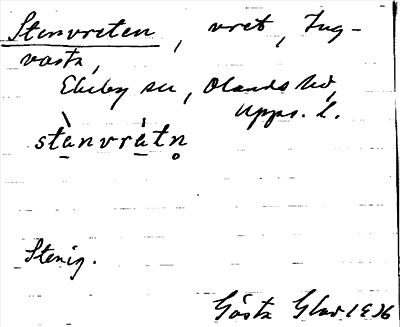 Stenvreten, vret, Tug-
vasta,
Ekeby sn, Olands hd,
Upps. l.
stànvrátn̥
Stenig.
Gösta